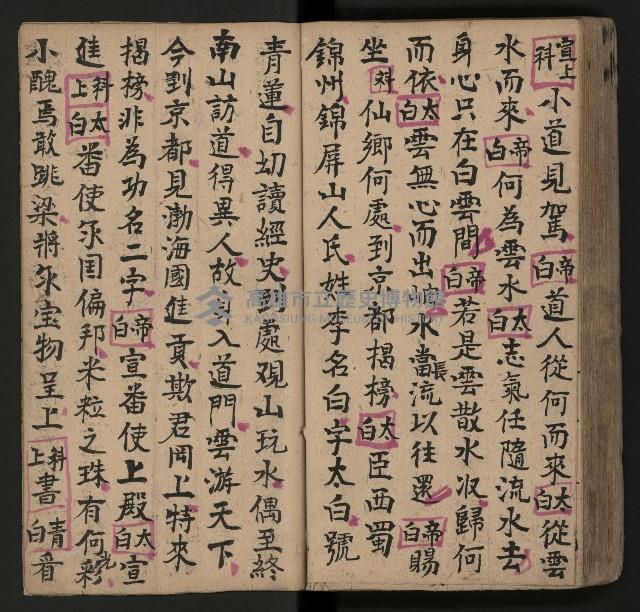 宣上科小道見駕帝白道人從何而來太白從雲
水而來帝白何為雲水太白志氣任隨流水去
身心只在白雲間帝白若是雲散水收歸何
而依太白雲無心而出岫水當長流以往還帝白賜
坐科仙鄉何處到京都揭榜太白臣西蜀
錦州錦屏山人氏姓李名白字太白號
青蓮自幼讀經史到處观山玩水偶至終
南山訪道得異人故入道門雲游天下
今到京都見渤海國進貢欺君罔上特來
揭榜非為功名二字帝白宣番使上殿太白宣
進科上太白番使尔国偏邦米粒之珠有何光彩
小醜焉敢跳梁將尔宝物呈上科上書青白看
高雄市立歷史博物館
KAOHSIUNG MUSEUM OF HISTORY